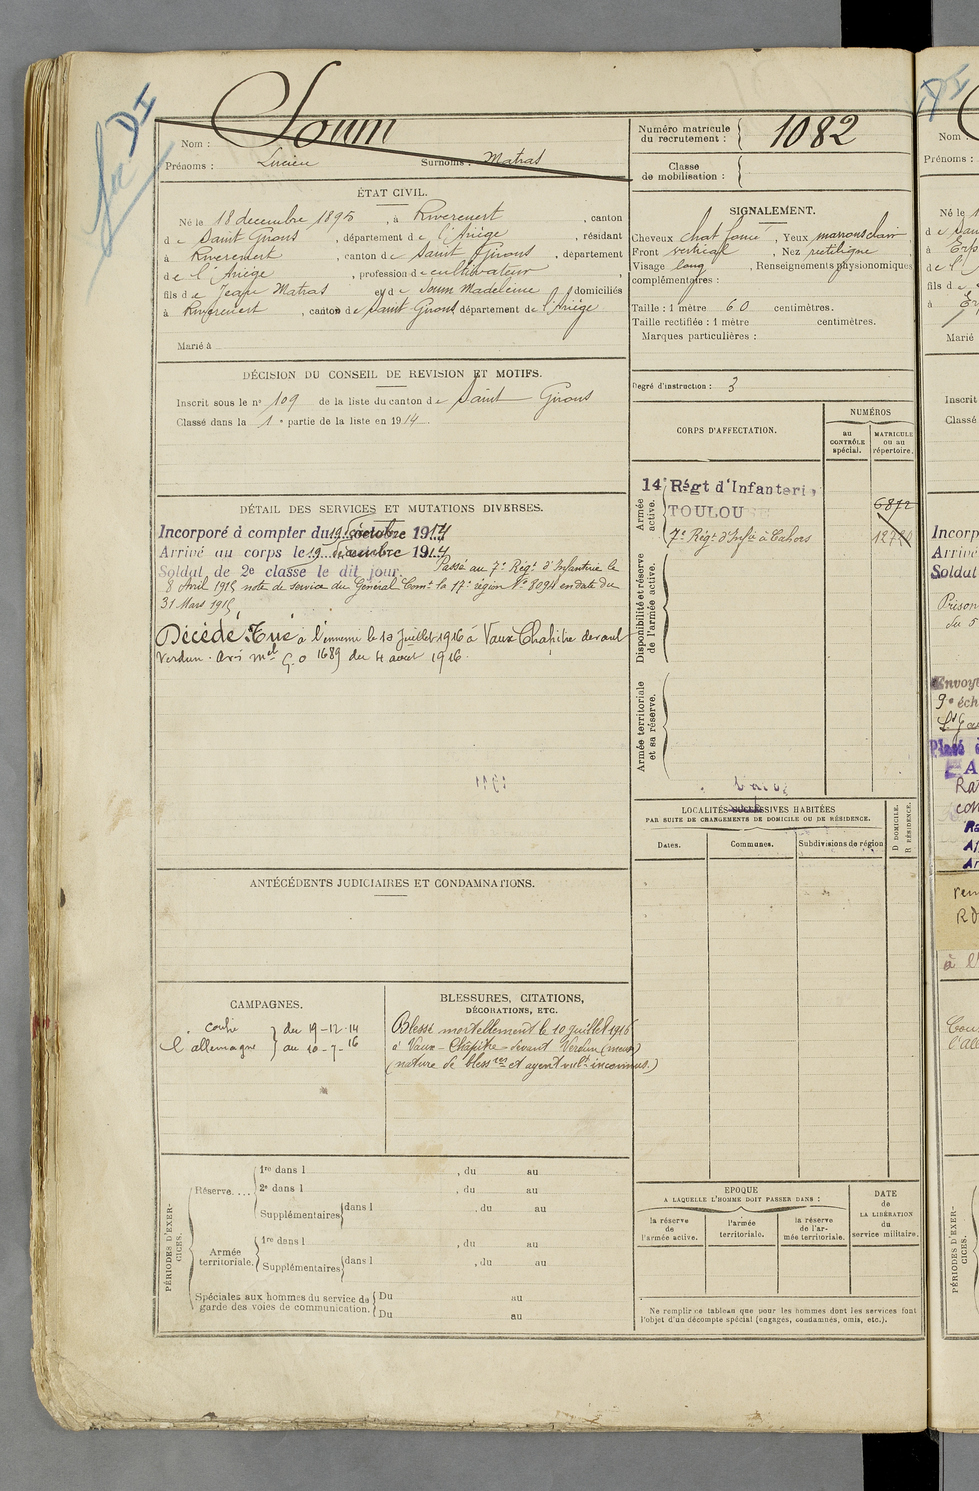 Nom : Soum
Prénoms : Lucien Surnoms : Matras
Numéro matricule
du recrutement : 1082
Classe
de mobilisation :
ÉTAT CIVIL.
Né le 18 décembre 1895, à Riverenert, canton
de Saint Girons, département de l'Ariège, résidant
à Riverenert, canton de Saint Girons, département
de l'Ariège, profession de cultivateur
fils de Jean Matras et de Soum Madeleine domiciliés
à Riverenert, canton de Saint Girons département de l'Ariège
Marié à
SIGNALEMENT.
Cheveux chat foncé, Yeux marrons clair
Front vertical, Nez rectiligne
Visage long, Renseignements physionomiques
complémentaires :
Taille : 1 mètre 60 centimètres.
Taille rectifiée : 1 mètre centimètres.
Marques particulières :
Degré d'instruction : 3
DÉCISION DU CONSEIL DE REVISION ET MOTIFS.
Inscrit sous le n° 109 de la liste du canton de Saint Girons
Classé dans la 1e partie de la liste en 1914.
CORPS D'AFFECTATION.
NUMÉROS
au
CONTRÔLE
spécial.
MATRICULE
ou au
répertoire.
Armée
active.
14e Régt d'Infanterie
TOULOUSE
7e Régt d'Infie à Cahors
6872
Disponibilité et réserve
de l'armée active.
Armée territoriale
et sa réserve.
DÉTAIL DES SERVICES ET MUTATIONS DIVERSES.
Incorporé à compter du 19 décembre 1914
Arrivé au corps le 19 décembre 1914
Soldat de 2e classe le dit jour. Passé au 7e Régt d'Infanterie le
8 Avril 1915 note de service du Général Comt la 17e région N° 8094 en date du
31 Mars 1915
Décédé. Tué à l'ennemi le 10 Juillet 1916 à Vaux Chapitre devant
Verdun. Avis mel G.O 1689 du 4 aout 1916.
LOCALITÉS SUCCESSIVES HABITÉES
PAR SUITE DE CHANGEMENTS DE DOMICILE OU DE RÉSIDENCE.
Dates.
Communes.
Subdivisions de région
D DOMICILE.
R RÉSIDENCE.
ANTÉCÉDENTS JUDICIAIRES ET CONDAMNATIONS.
CAMPAGNES.
contre du 19-12-14
l'allemagne au 10-7-16
BLESSURES, CITATIONS,
DÉCORATIONS, ETC.
Blessé mortellement le 10 juillet 1916
à Vaux-Chapitre devant Verdun (meuse)
(nature de blessres et agent vulnt inconnus.)
PÉRIODES D'EXER-
CICES.
Réserve....
1re dans l , du au
2e dans l , du au
Supplémentaires dans l , du au
Armée
territoriale.
1re dans l , du au
Supplémentaires dans l , du au
Spéciales aux hommes du service de
garde des voies de communication.
Du au
Du au
EPOQUE
A LAQUELLE L'HOMME DOIT PASSER DANS :
la réserve
de
l'armée active.
l'armée
territoriale.
la réserve
de l'ar-
mée territoriale.
DATE
de
LA LIBÉRATION
du
service militaire.
Ne remplir ce tableau que pour les hommes dont les services font
l'objet d'un décompte spécial (engagés, condamnés, omis, etc.).